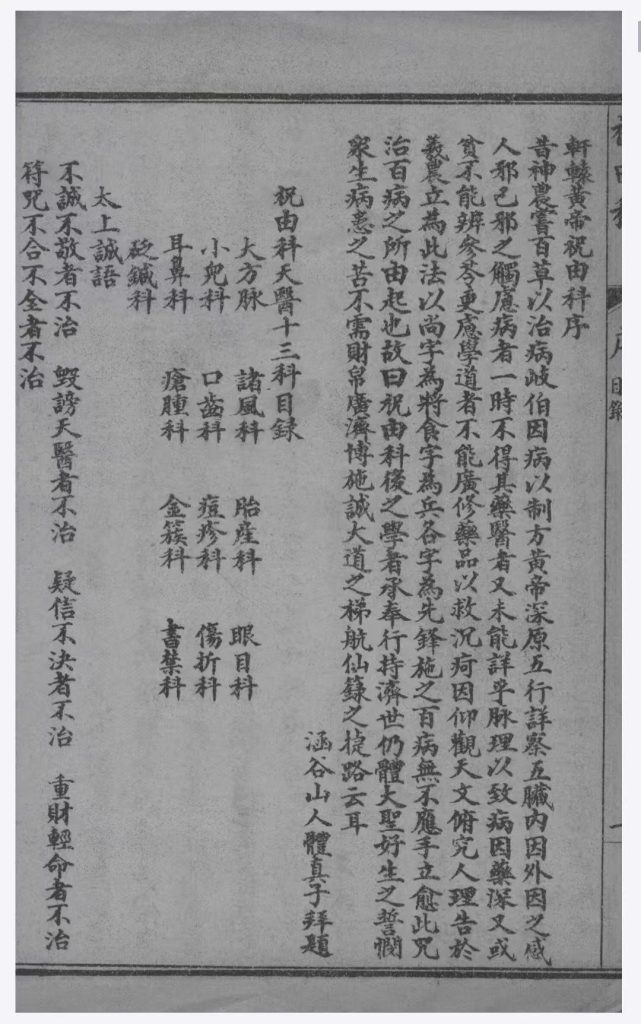 軒轅黃帝祝由科序
昔神農嘗百草以治病岐伯因病以制方黃帝深原五行詳察五臟內因外因之感
人邪己邪之觸慮病者一時不得其藥醫者又未能詳乎脉理以致病因藥深又或
貧不能辨參苓更慮學道者不能廣修藥品以救沉疴因仰觀天文俯究人理告於
羲農立為此法以尚字為將食字為兵各字為先鋒施之百病無不應手立愈此咒
治百病之所由起也故曰祝由科後之學者承奉行持濟世仍體大聖好生之誓憫
眾生病患之苦不需財帛廣濟博施誠大道之梯航仙籙之捷路云耳
涵谷山人體真子拜題
祝由科天醫十三科目錄
大方脉 諸風科 胎產科 眼目科
小兒科 口齒科 痘疹科 傷折科
耳鼻科 瘡腫科 金簇科 書禁科
砭鍼科
太上誠語
不誠不敬者不治 毀謗天醫者不治 疑信不決者不治 重財輕命者不治
符咒不合不全者不治
序
目錄
一